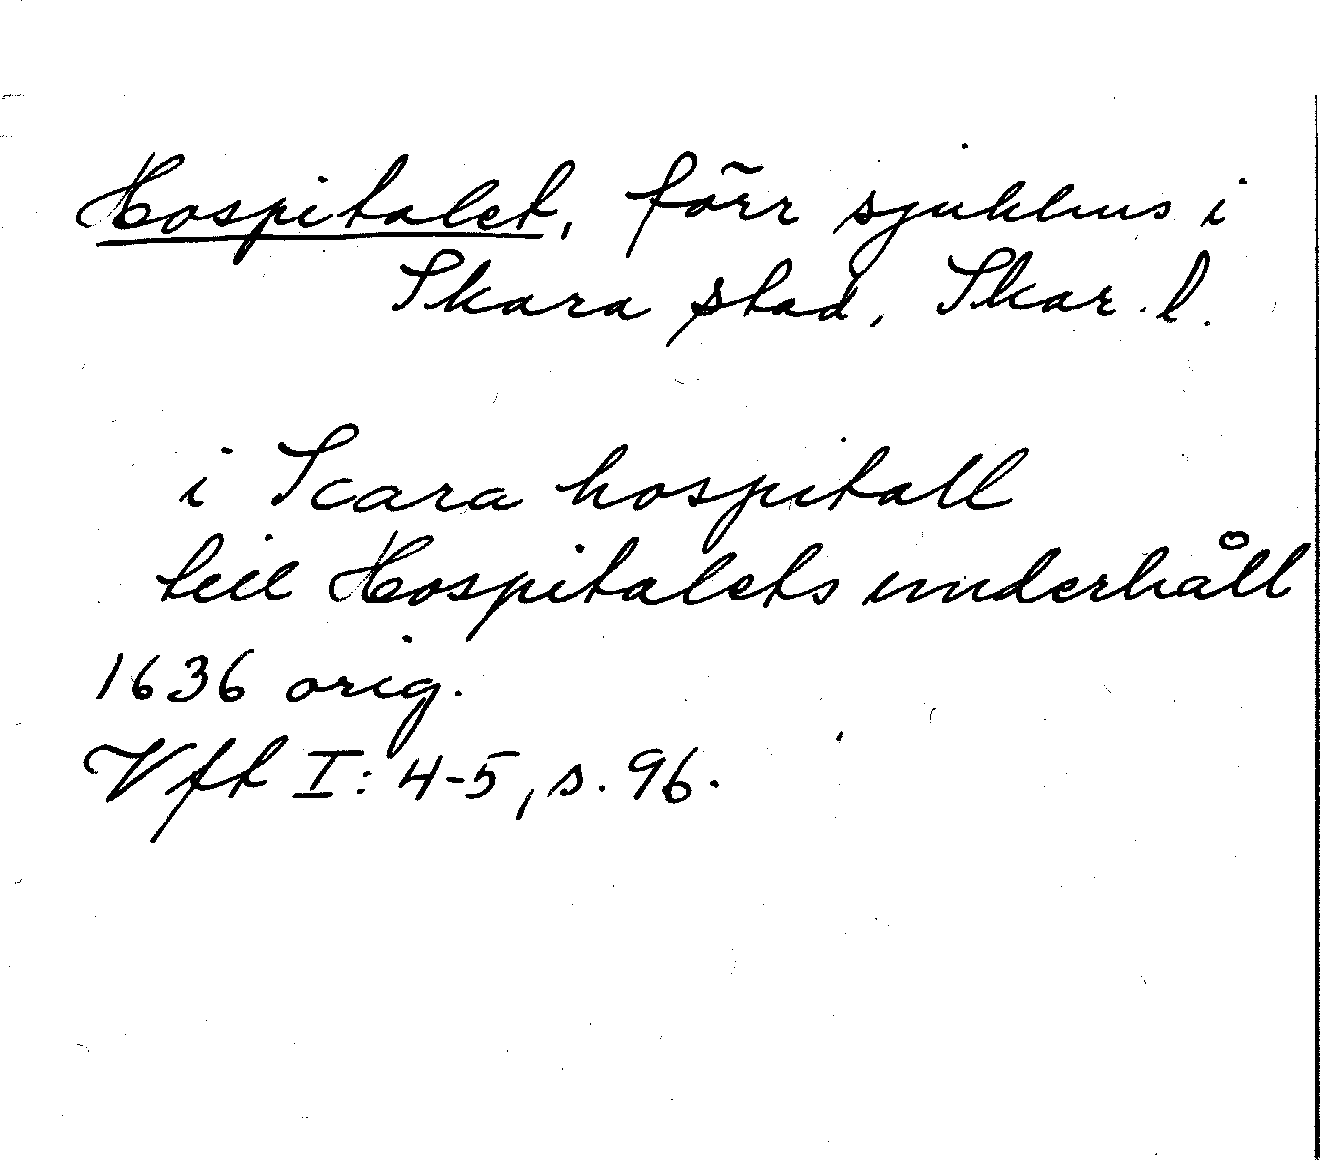 Hospitalet, förr sjukhus i
Skara stad, Skar. l.
i Scara hospitall
till Hospitalets underhåll
1636 orig.
Vft I: 4-5, s. 96.